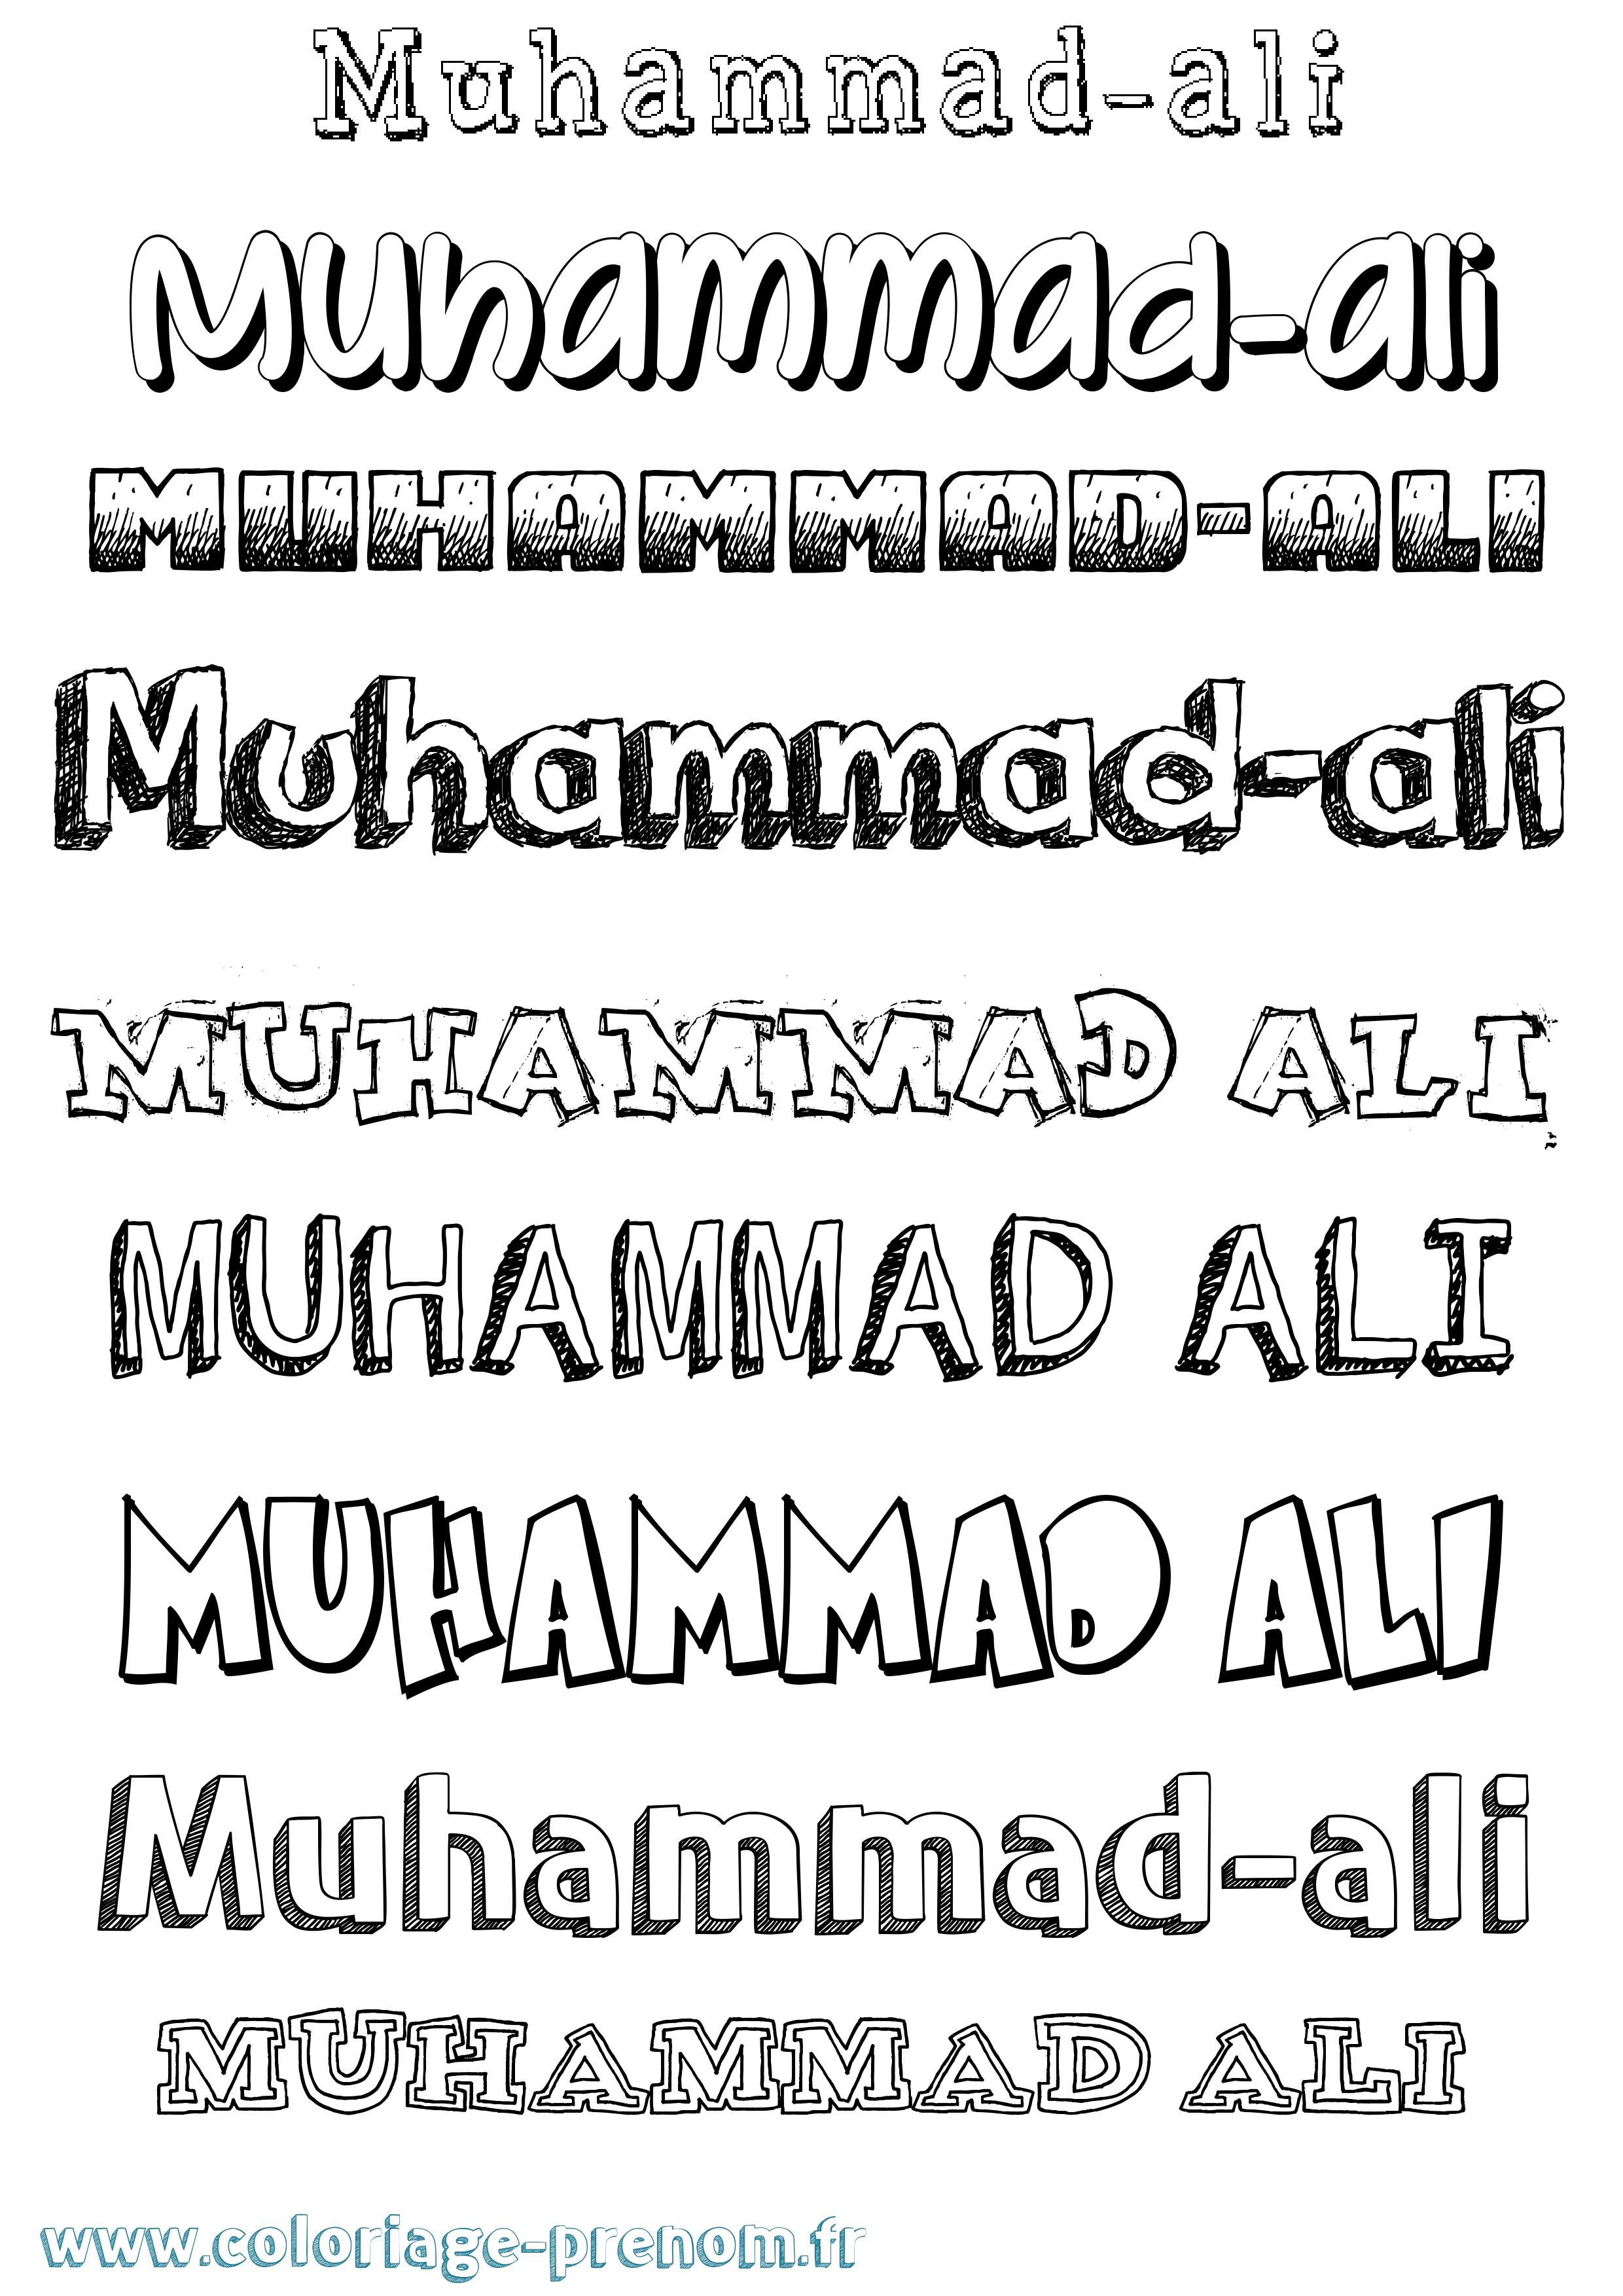 Muhammad-ali
Muhammad-ali
MUHAMMAD-ALI
Muhammad-ali
MUHAMMAD ALI
MUHAMMAD ALI
MUHAMMAD ALI
Muhammad-ali
MUHAMMAD ALI
www.coloriage-prenom.fr